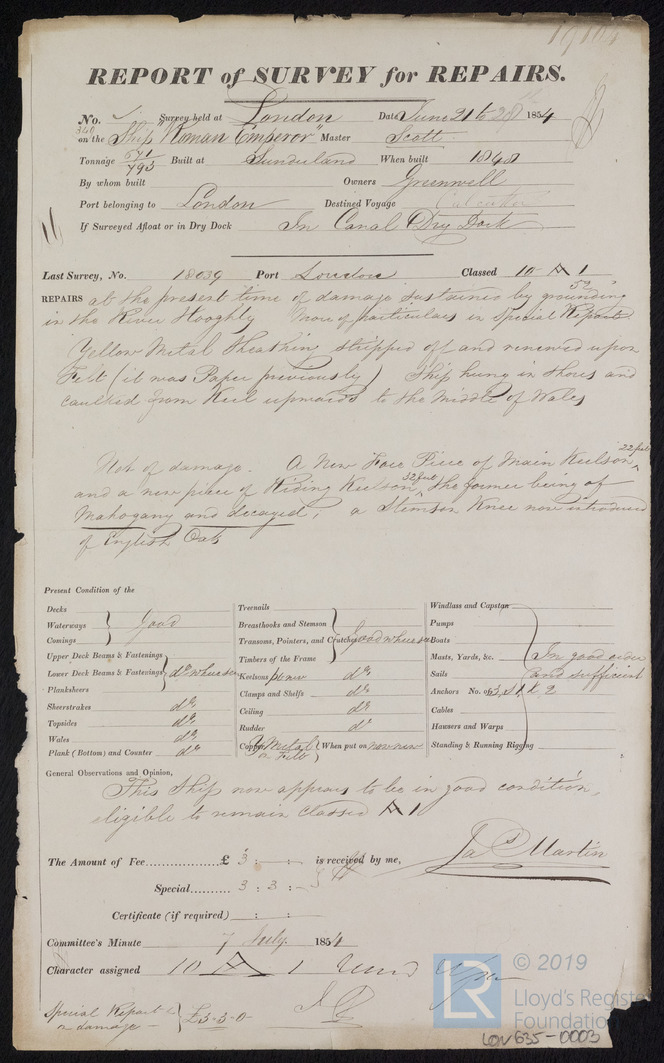 19104
REPORT of SURVEY for REPAIRS.
No. Survey held at London Date June 21 to 28th 1854
340 on the Ship "Roman Emperor" Master Scott
Tonnage 671/793 Built at Sunderland When built 1848
By whom built Owners Greenwell
Port belonging to London Destined Voyage Calcutta
If Surveyed Afloat or in Dry Dock In Canal Dry Dock
Last Survey, No. 18039 Port London Classed 10 A 1
REPAIRS at the present time of damage sustained by grounding
in the River Hooghly more of particulars in Special Report
Yellow Metal Sheathing stripped off and renewed upon
Felt (it was Paper previously) Ship hung in Shores and
caulked from Keel upwards to the Middle of Wales
Not of damage. A New Fore Piece of Main Keelson 22 feet
and a new piece of Riding Keelson 32 feet, the former being of
Mahogany and decayed, a Stemson Knee now introduced
of English Oak
Present Condition of the
Decks
Waterways Good
Comings
Upper Deck Beams & Fastenings
Lower Deck Beams & Fastenings do where seen
Planksheers
Sheerstrakes do
Topsides do
Wales do
Plank (Bottom) and Counter do
Treenails
Breasthooks and Stemson
Transoms, Pointers, and Crutches Good where seen
Timbers of the Frame
Keelsons pt new do
Clamps and Shelfs do
Ceiling do
Rudder do
Copper Y Metal on Felt When put on now new
Windlass and Capstan
Pumps
Boats
Masts, Yards, &c. In good order
Sails and sufficient
Anchors No. of 3, S 1, K 2
Cables
Hawsers and Warps
Standing & Running Rigging
General Observations and Opinion,
This Ship now appears to be in good condition,
eligible to remain classed A 1
The Amount of Fee £ 3 : - : - is received by me, Jas Martin
Special 3 : 3 : -
Certificate (if required) : :
Committee's Minute 7 July 1854
Character assigned 10 A 1
Special Report on damage £3-3-0
LR © 2019
Lloyd's Register
Foundation
LON635-0003